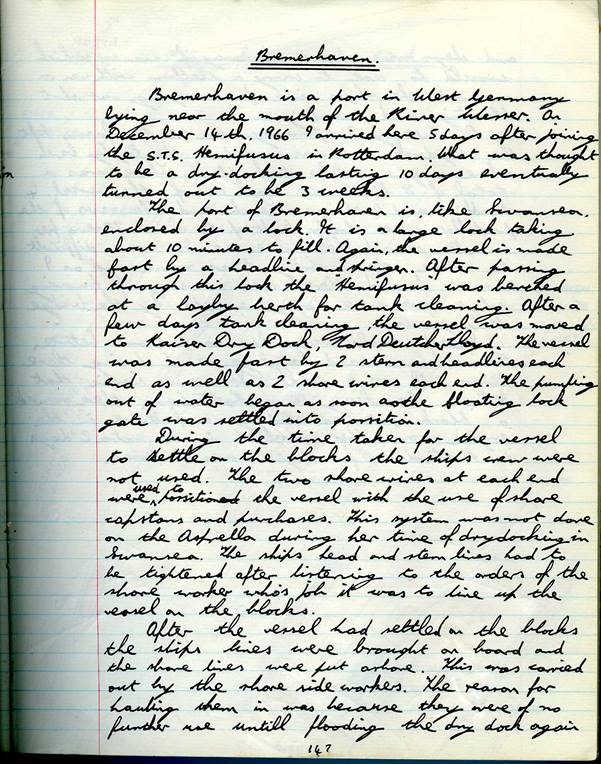 Bremerhaven.
Bremerhaven is a port in West Germany
lying near the mouth of the River Weser. On
December 14th. 1966 I arrived here 5 days after joining
the S.T.S. Hemifusus in Rotterdam. What was thought
to be a dry-docking lasting 10 days eventually
turned out to be 3 weeks.
The port of Bremerhaven is, like Swansea.
enclosed by a lock. It is a large lock taking
about 10 minutes to fill. Again, the vessel is made
fast by a headline and springer. After passing
through this lock the Hemifusus was berthed
at a layby berth for tank cleaning. After a
few days tank cleaning the vessel was moved
to Kaiser Dry Dock, Nord Deutcher Lloyd. The vessel
was made fast by 2 stern and headlines each
end as well as 2 shore wires each end. The pumping
out of water began as soon as the floating lock
gate was settled into porsition.
During the time taken for the vessel
to settle on the blocks the ships crew were
not used. The two shore wires at each end
were used to porsition the vessel with the use of shore
capstans and purchases. This system was not done
on the Asprella during her time of drydocking in
Swansea. The ships head and stern lines had to
be tightened after listening to the orders of the
shore worker who's job it was to line up the
vessel on the blocks.
After the vessel had settled on the blocks
the ships lines were brought on board and
the shore lines were put ashore. This was carried
out by the shore side workers. The reason for
hauling them in was because they were of no
further use untill flooding the dry dock again
147